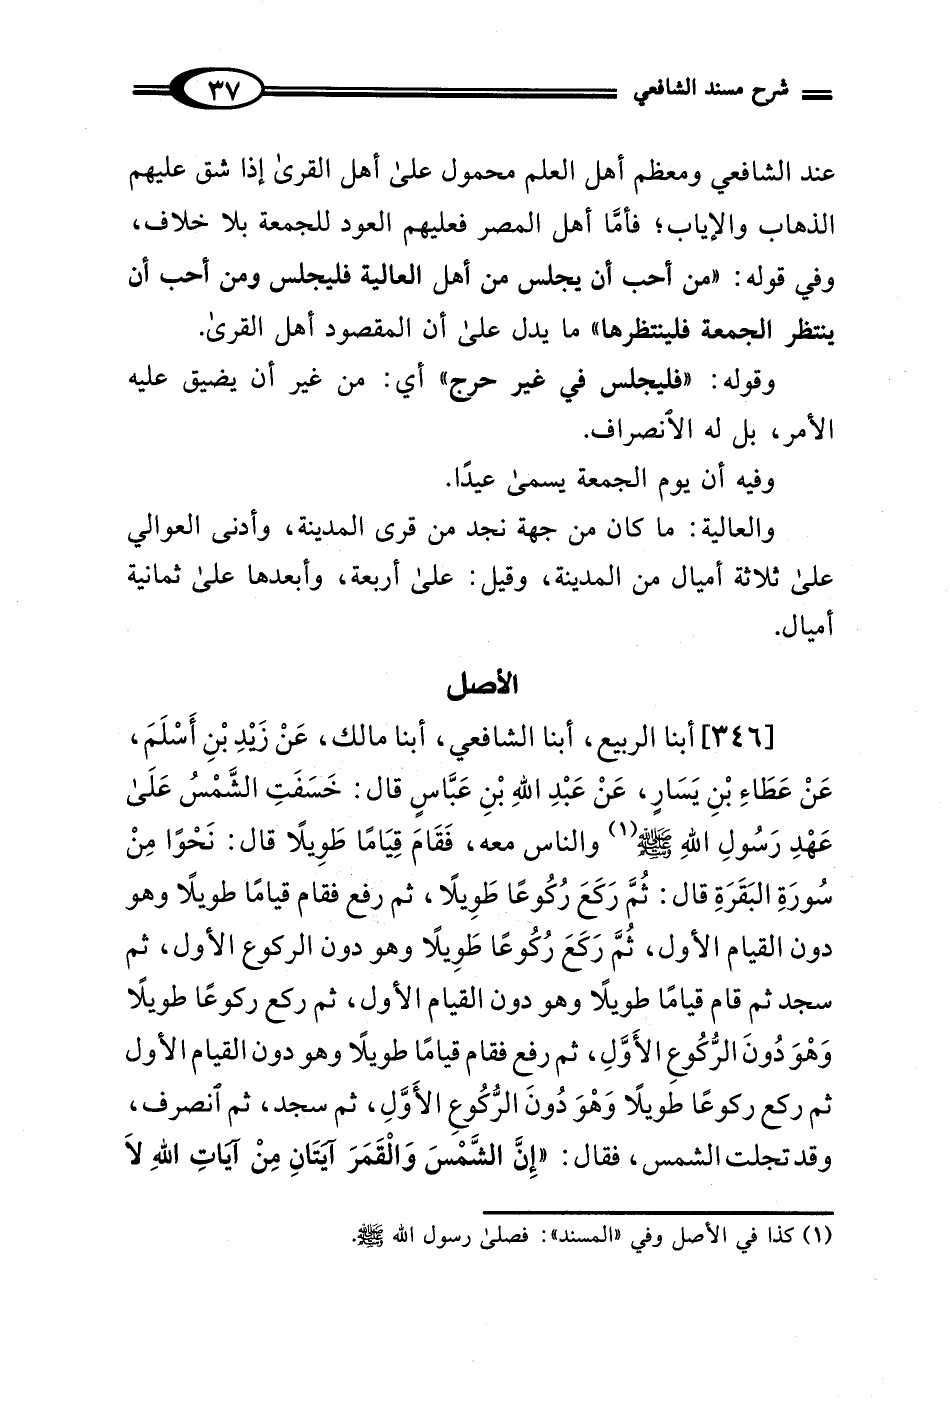 شرح مسند الشافعي ٣٧
عند الشافعي ومعظم أهل العلم محمول علىٰ أهل القرىٰ إذا شق عليهم
الذهاب والإياب؛ فأمَّا أهل المصر فعليهم العود للجمعة بلا خلاف،
وفي قوله: «من أحب أن يجلس من أهل العالية فليجلس ومن أحب أن
ينتظر الجمعة فلينتظرها» ما يدل علىٰ أن المقصود أهل القرىٰ.
وقوله: «فليجلس في غير حرج» أي: من غير أن يضيق عليه
الأمر، بل له الٱنصراف.
وفيه أن يوم الجمعة يسمىٰ عيدًا.
والعالية: ما كان من جهة نجد من قرى المدينة، وأدنى العوالي
علىٰ ثلاثة أميال من المدينة، وقيل: علىٰ أربعة، وأبعدها علىٰ ثمانية
أميال.
الأصل
[٣٤٦] أبنا الربيع، أبنا الشافعي، أبنا مالك، عَنْ زَيْدِ بْنِ أَسْلَمَ،
عَنْ عَطَاءِ بْنِ يَسَارٍ، عَنْ عَبْدِ اللهِ بْنِ عَبَّاسٍ قال: خَسَفَتِ الشَّمْسُ عَلَىٰ
عَهْدِ رَسُولِ اللهِ ﷺ(١) والناس معه، فَقَامَ قِيَامًا طَوِيلًا قال: نَحْوًا مِنْ
سُورَةِ البَقَرَةِ قال: ثُمَّ رَكَعَ رُكُوعًا طَوِيلًا، ثم رفع فقام قيامًا طويلًا وهو
دون القيام الأول، ثُمَّ رَكَعَ رُكُوعًا طَوِيلًا وهو دون الركوع الأول، ثم
سجد ثم قام قيامًا طويلًا وهو دون القيام الأول، ثم ركع ركوعًا طويلًا
وَهْوَ دُونَ الرُّكُوعِ الأَوَّلِ، ثم رفع فقام قيامًا طويلًا وهو دون القيام الأول
ثم ركع ركوعًا طويلًا وَهْوَ دُونَ الرُّكُوعِ الأَوَّلِ، ثم سجد، ثم ٱنصرف،
وقد تجلت الشمس، فقال: «إِنَّ الشَّمْسَ وَالْقَمَرَ آيَتَانِ مِنْ آيَاتِ اللهِ لاَ
(١) كذا في الأصل وفي «المسند»: فصلىٰ رسول الله ﷺ.